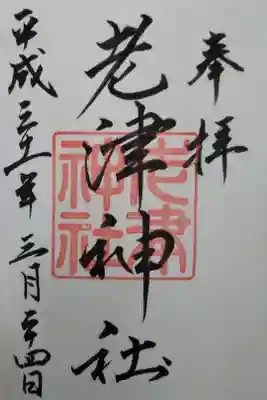 奉拝
老津神社
老津神社
平成三十一年三月二十四日